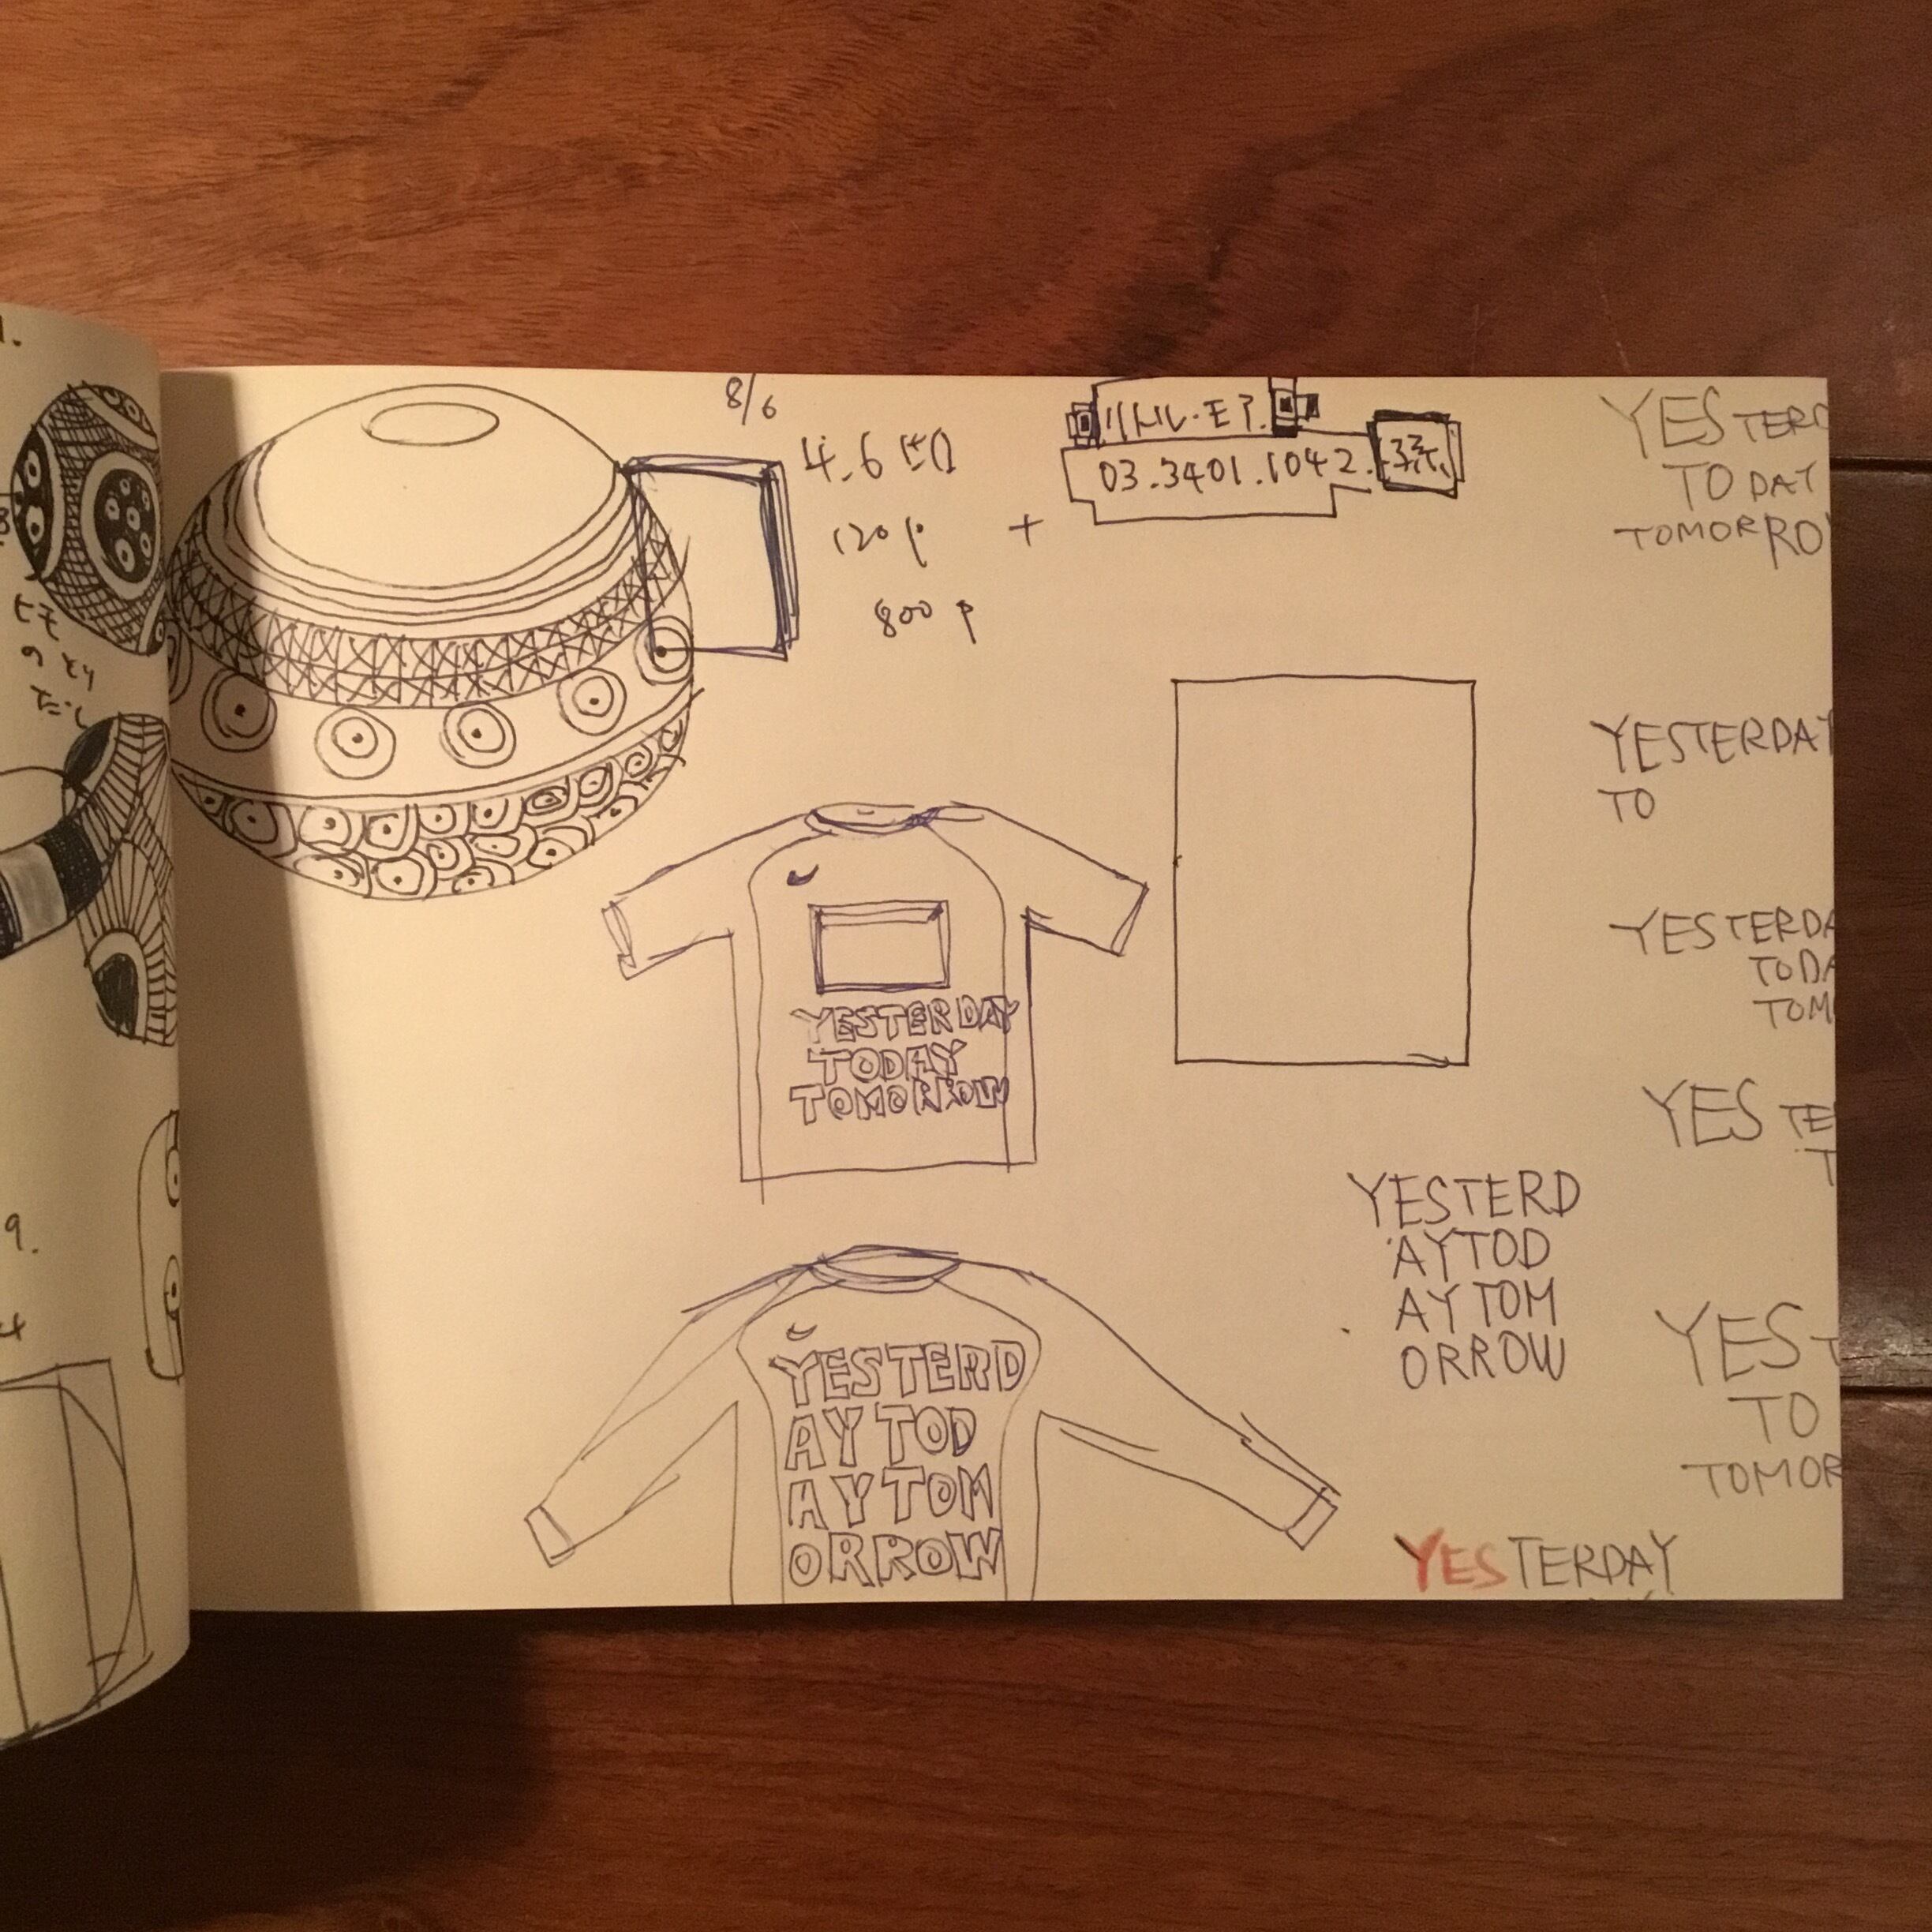 8/6
4.6
120 P
800 P
+
リトル・モア.
03.3401.1042.
YESTERD
TODAY
TOMORRO
YESTERDAY
TO
YESTERDA
TODA
TOM
YES TE
T
YEST
TO
TOMOR
YESTERDAY
TODAY
TOMORROW
YESTERD
AYTOD
AYTOM
ORROW
YESTERD
AYTOD
AYTOM
ORROW
YESTERDAY
ヒモ
のとり
だし
9.
4